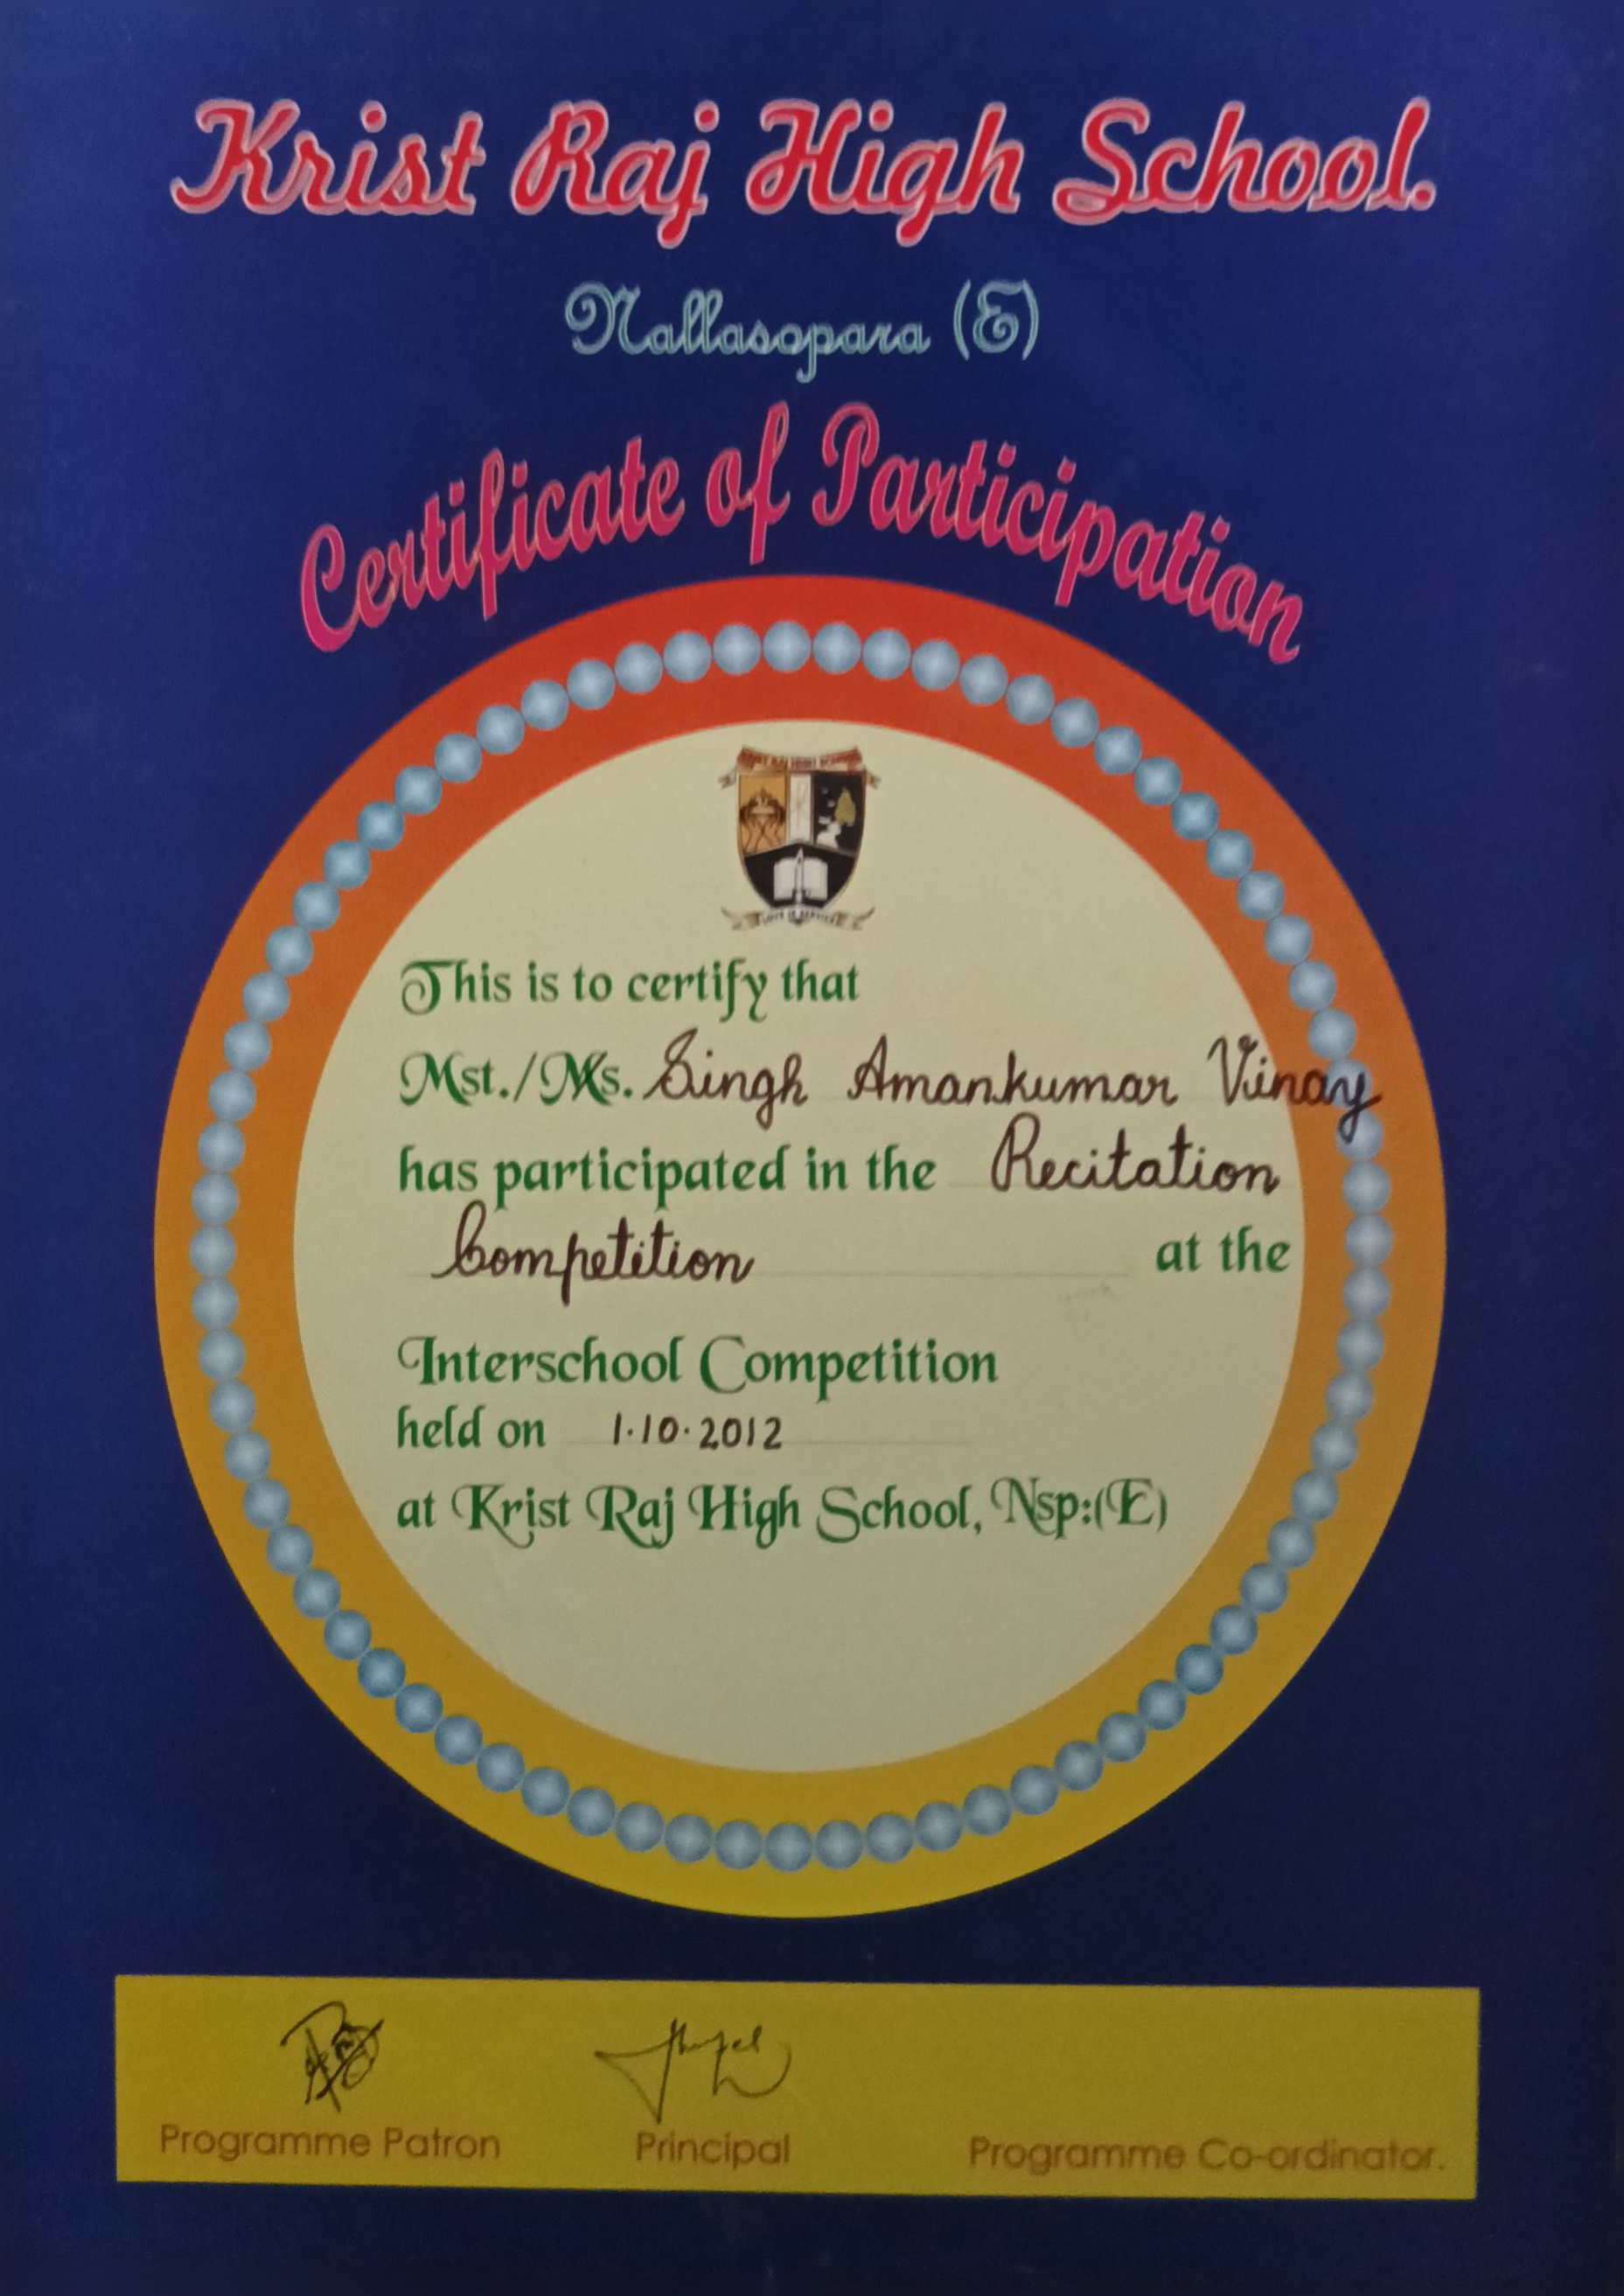 Krist Raj High School.
Nallasopara (E)
Certificate of Participation
KRIST RAJ HIGH SCHOOL
LOVE IS SERVICE
This is to certify that
Mst./Ms. Singh Amankumar Vinay
has participated in the Recitation
Competition at the
Interschool Competition
held on 1.10.2012
at Krist Raj High School, Nsp:(E)
Programme Patron Principal Programme Co-ordinator.